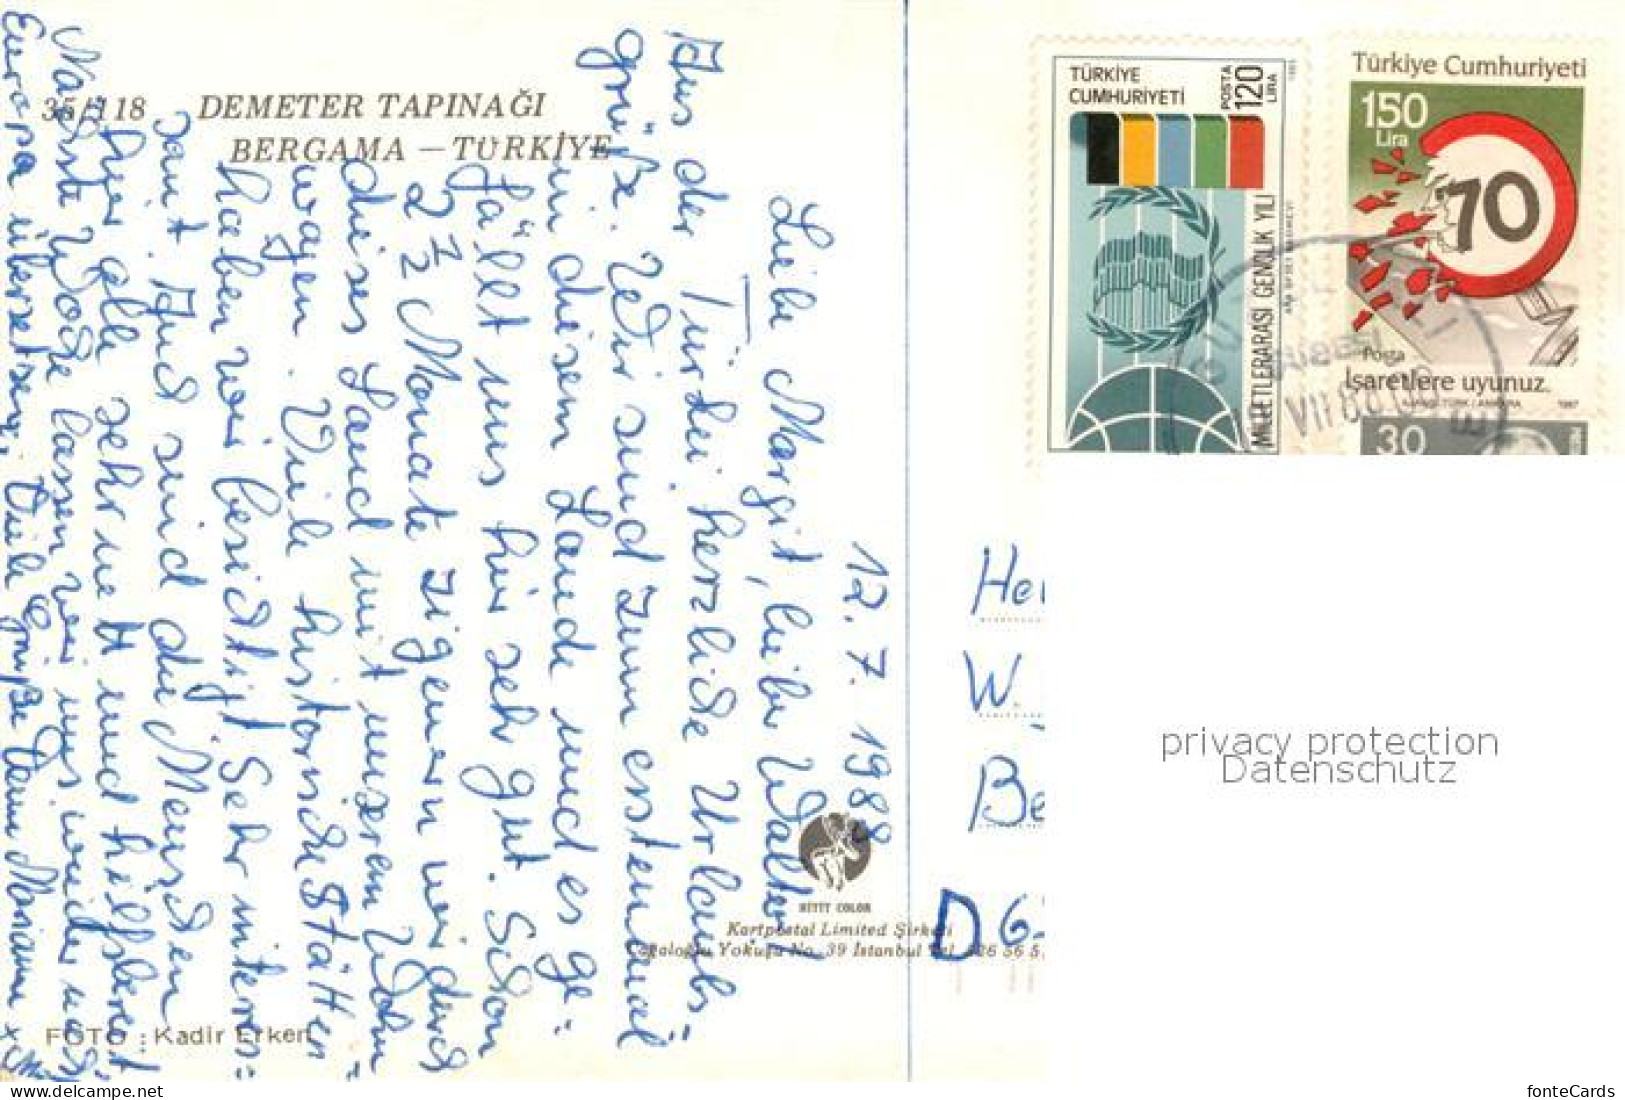 35/118 DEMETER TAPINAĞI
BERGAMA – TÜRKİYE
12.7.1988
Liebe Margit, lieber Walter
Aus der Türkei herzliche Urlaubs=
grüße. Wir sind zum erstenmal
in diesem Lande und es ge=
fällt uns hier sehr gut. Schon
2½ Monate zigeunern wir durch
dieses Land mit unserem Wohn=
wagen. Viele historische Stätten
haben wir besichtigt. Sehr interes=
sant. Auch sind die Menschen
hier alle sehr nett und hilfsbereit
Nächste Woche lassen wir uns wieder nach
Europa übersetzen. Viele Grüße Deine Mariann
FOTO : Kadir Erken
HİTİT COLOR
Kartpostal Limited Şirketi
Cağaloğlu Yokuşu No. 39 İstanbul Tel. 26 56 5
TÜRKİYE
CUMHURİYETİ
POSTA
120
LİRA
1985
MİLLETLERARASI GENÇLİK YILI
Türkiye Cumhuriyeti
150
Lira
70
Posta
İşaretlere uyunuz.
1987
30
He
W.
Be
D 6
privacy protection
Datenschutz
fonteCards